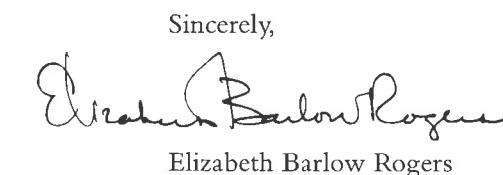 Sincerely,
Elizabeth Barlow Rogers
Elizabeth Barlow Rogers